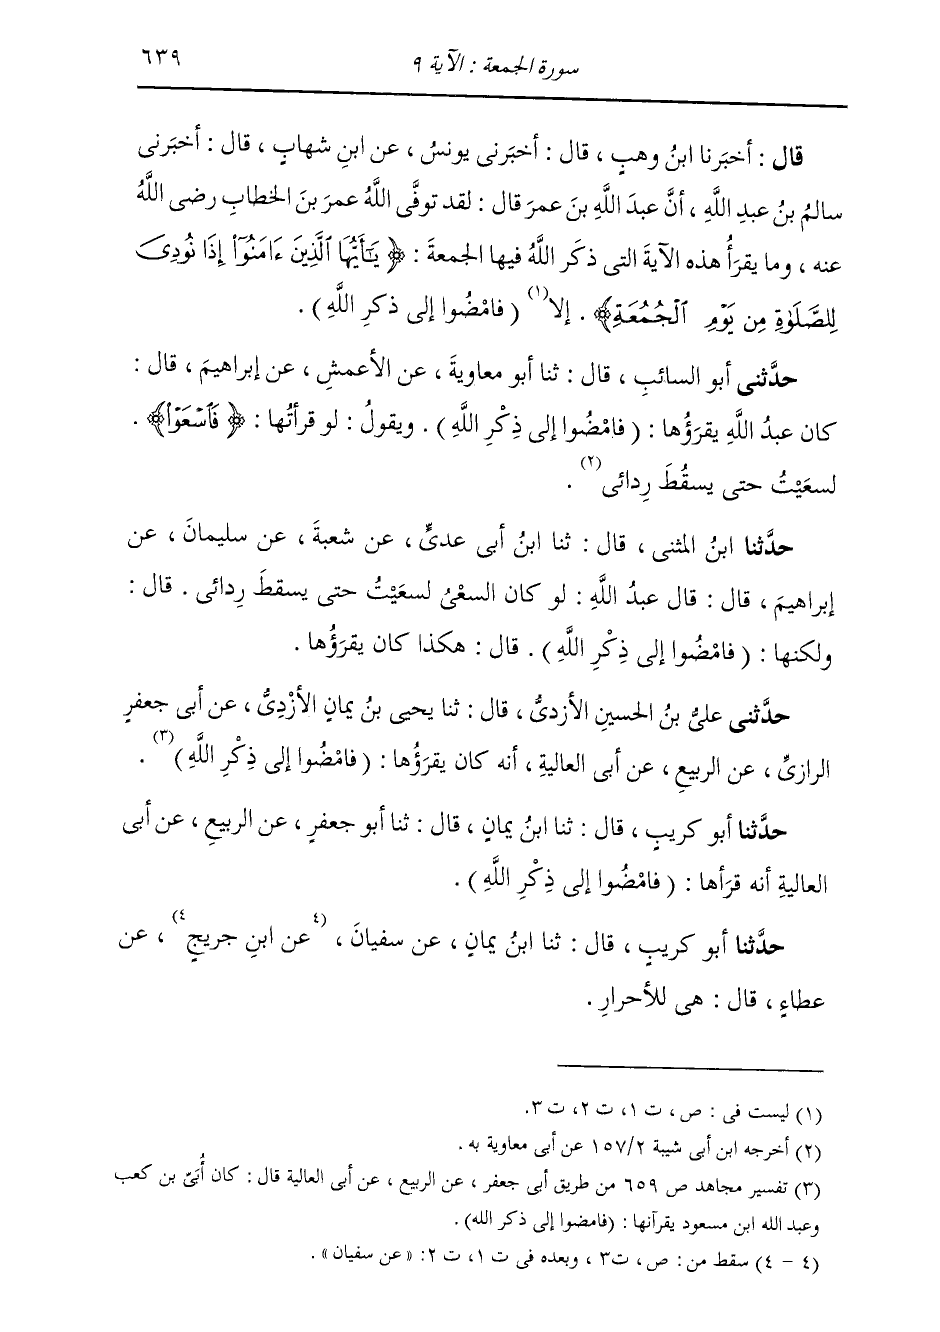 سورة الجمعة : الآية ٩
٦٣٩
قال : أخبَرنا ابنُ وهبٍ ، قال : أخبَرنى يونسُ ، عن ابنِ شهابٍ ، قال : أخبَرنى
سالمُ بنُ عبدِ اللَّهِ ، أنَّ عبدَ اللَّهِ بنَ عمرَ قال : لقد توفَّى اللَّهُ عمرَ بنَ الخطابِ رضى اللَّهُ
عنه ، وما يقرَأُ هذه الآيةَ التى ذكَر اللَّهُ فيها الجمعةَ : ﴿ يَٰٓأَيُّهَا ٱلَّذِينَ ءَامَنُوٓا۟ إِذَا نُودِىَ
لِلصَّلَوٰةِ مِن يَوْمِ ٱلْجُمُعَةِ﴾ . إلا(١) ( فامْضُوا إلى ذكرِ اللَّهِ ) .
حدَّثنى أبو السائبِ ، قال : ثنا أبو معاويةَ ، عن الأعمشِ ، عن إبراهيمَ ، قال :
كان عبدُ اللَّهِ يقرَؤُها : ( فامْضُوا إلى ذِكْرِ اللَّهِ ) . ويقولُ : لو قرأتُها : ﴿ فَٱسْعَوْا۟﴾ .
لسعَيْتُ حتى يسقُطَ رِدائى(٢) .
حدَّثنا ابنُ المثنى ، قال : ثنا ابنُ أبى عدىٍّ ، عن شعبةَ ، عن سليمانَ ، عن
إبراهيمَ ، قال : قال عبدُ اللَّهِ : لو كان السعْىُ لسعَيْتُ حتى يسقطَ رِدائى . قال :
ولكنها : ( فامْضُوا إلى ذِكْرِ اللَّهِ ) . قال : هكذا كان يقرَؤُها .
حدَّثنى علىُّ بنُ الحسينِ الأزدىُّ ، قال : ثنا يحيى بنُ يمانٍ الأزْدِىُّ ، عن أبى جعفرٍ
الرازىِّ ، عن الربيعِ ، عن أبى العاليةِ ، أنه كان يقرَؤُها : ( فامْضُوا إلى ذِكْرِ اللَّهِ )(٣) .
حدَّثنا أبو كريبٍ ، قال : ثنا ابنُ يمانٍ ، قال : ثنا أبو جعفرٍ ، عن الربيعِ ، عن أبى
العاليةِ أنه قرَأها : ( فامْضُوا إلى ذِكْرِ اللَّهِ ) .
حدَّثنا أبو كريبٍ ، قال : ثنا ابنُ يمانٍ ، عن سفيانَ ، (٤عن ابنِ جريجٍ٤) ، عن
عطاءٍ ، قال : هى للأحرارِ .
(١) ليست فى : ص ، ت ١، ت ٢، ت ٣.
(٢) أخرجه ابن أبى شيبة ١٥٧/٢ عن أبى معاوية به .
(٣) تفسير مجاهد ص ٦٥٩ من طريق أبى جعفر ، عن الربيع ، عن أبى العالية قال : كان أُبَىّ بن كعب
وعبد الله ابن مسعود يقرآنها : (فامضوا إلى ذكر الله) .
(٤ - ٤) سقط من : ص ، ت٣ ، وبعده فى ت ١، ت ٢: « عن سفيان » .